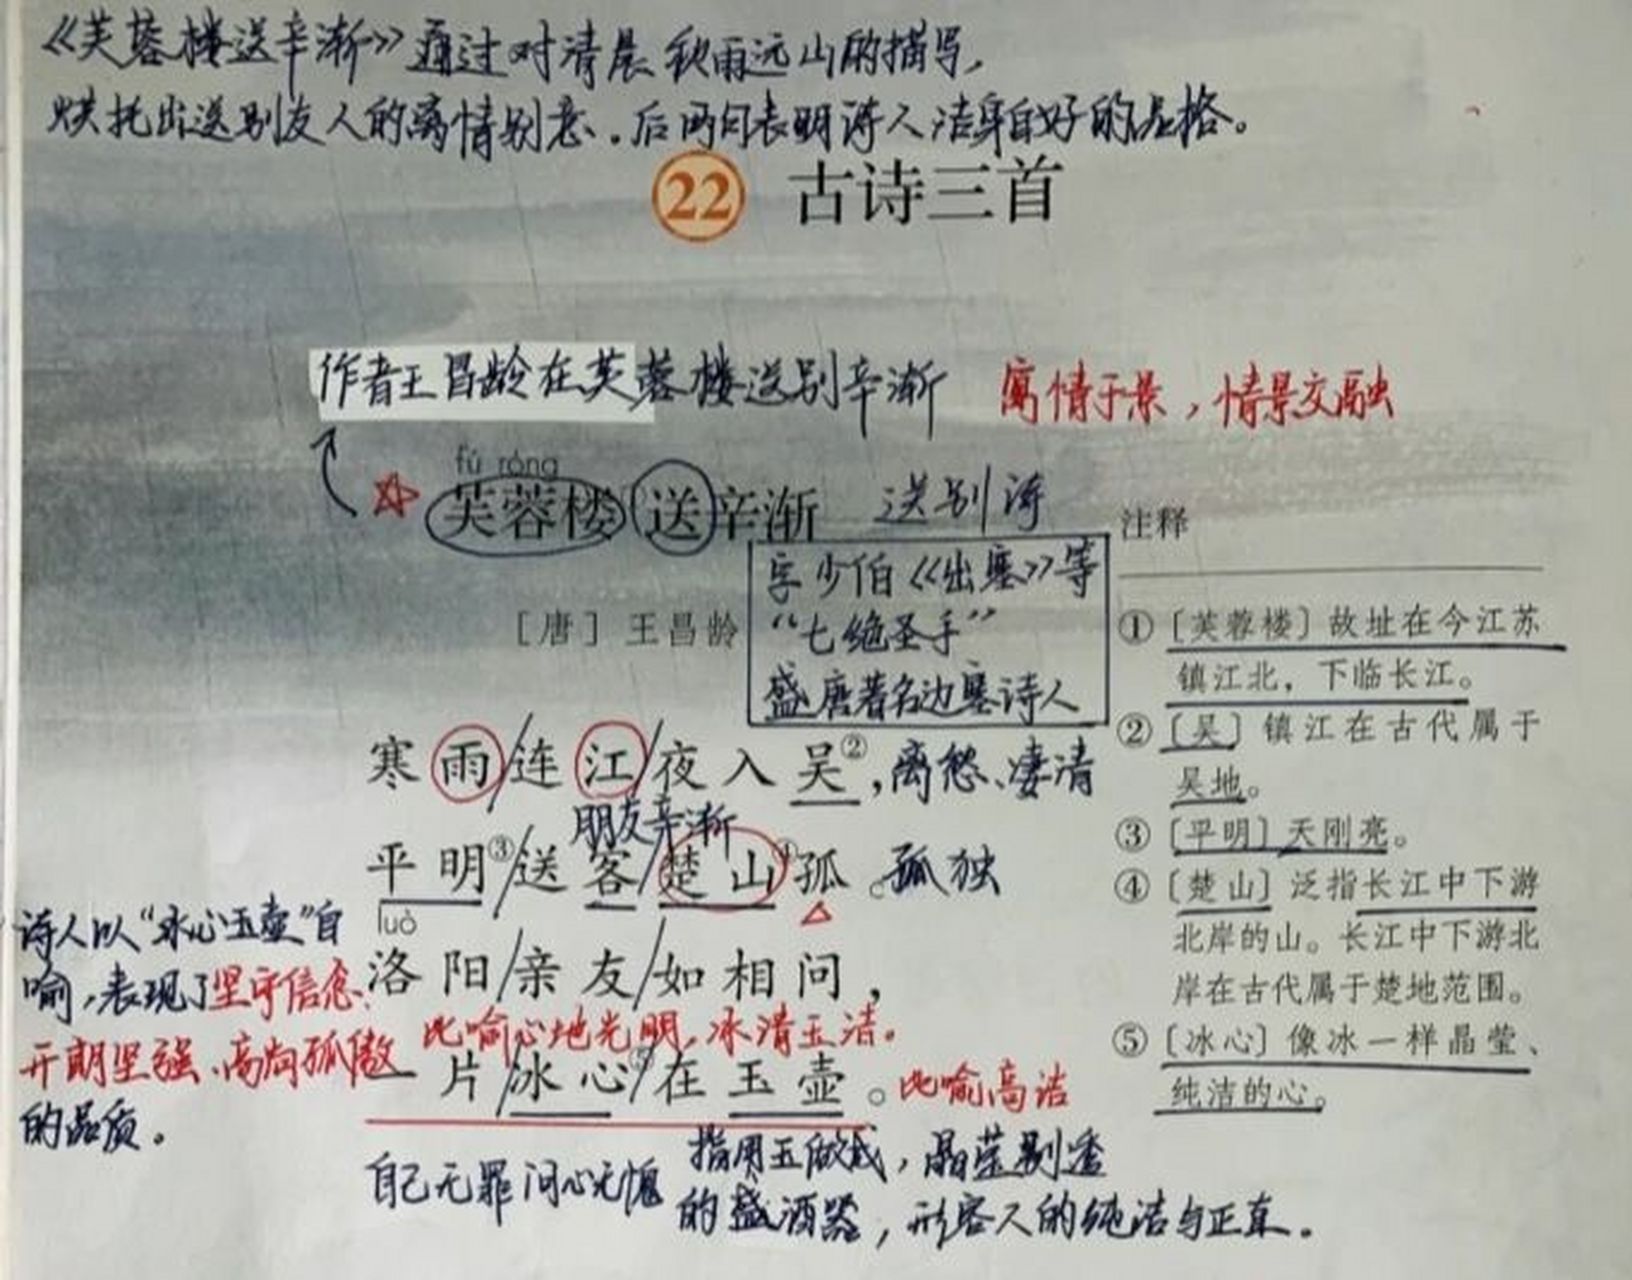 《芙蓉楼送辛渐》通过对清晨秋雨远山的描写，
烘托出送别友人的离情别意。后两句表明诗人洁身自好的品格。
22 古诗三首
作者王昌龄在芙蓉楼送别辛渐 寓情于景，情景交融
fú róng
芙蓉楼送辛渐 送别诗
[唐] 王昌龄
字少伯《出塞》等
“七绝圣手”
盛唐著名边塞诗人
寒雨/连江/夜入吴②，离愁、凄清
朋友辛渐
平明③/送客/楚山④孤。孤独
luò
洛阳/亲友/如相问，
比喻心地光明，冰清玉洁。
一片/冰心⑤/在玉壶。比喻高洁
自己无罪问心无愧
指用玉做成，晶莹剔透
的盛酒器，形容人的纯洁与正直。
诗人以“冰心玉壶”自
喻，表现了坚守信念、
开朗坚强、高尚孤傲
的品质。
注释
① [芙蓉楼] 故址在今江苏
镇江北，下临长江。
② [吴] 镇江在古代属于
吴地。
③ [平明] 天刚亮。
④ [楚山] 泛指长江中下游
北岸的山。长江中下游北
岸在古代属于楚地范围。
⑤ [冰心] 像冰一样晶莹、
纯洁的心。